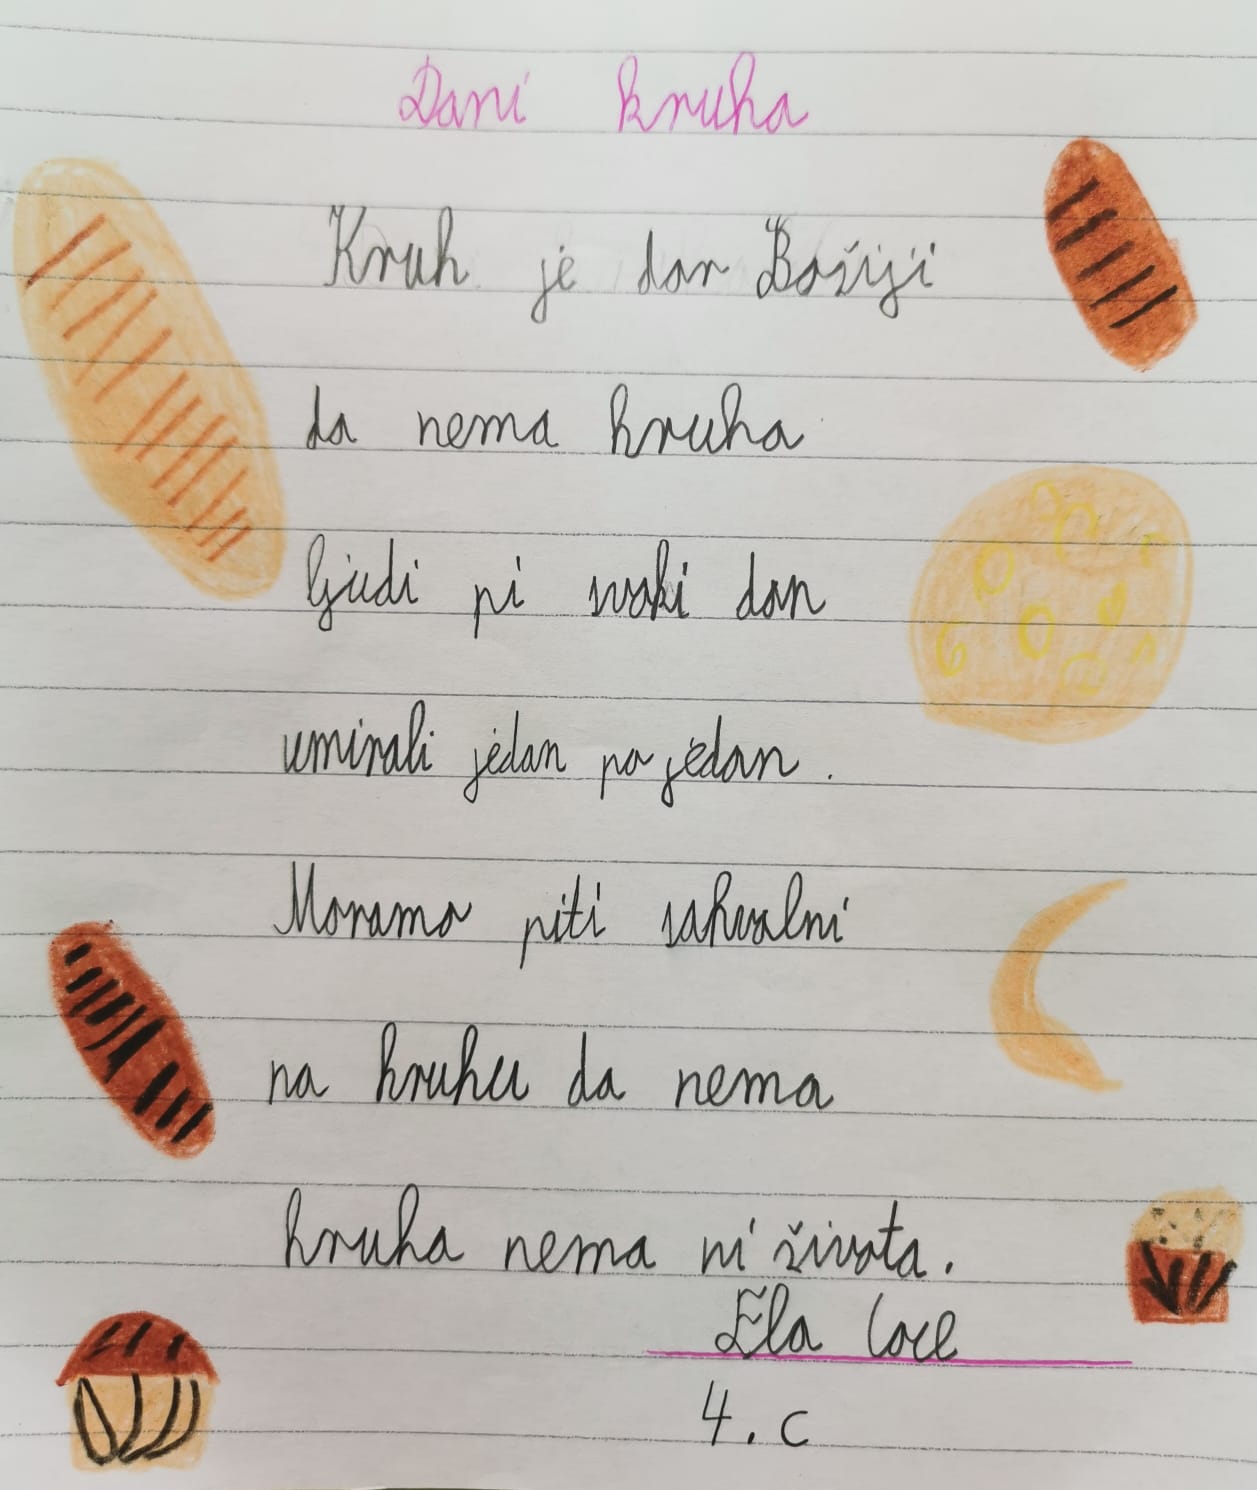 Dani kruha
Kruh je dar Božiji
da nema kruha
ljudi pi svaki dan
umirali jedan po jedan.
Moramo piti zahvalni
na kruhu da nema
kruha nema ni života.
Ela
4.c